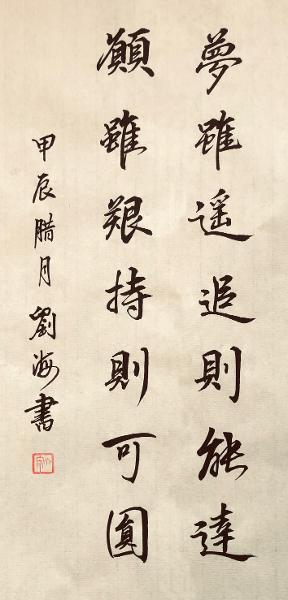 夢雖遥追則能達
願雖艱持則可圓
甲辰腊月劉海書